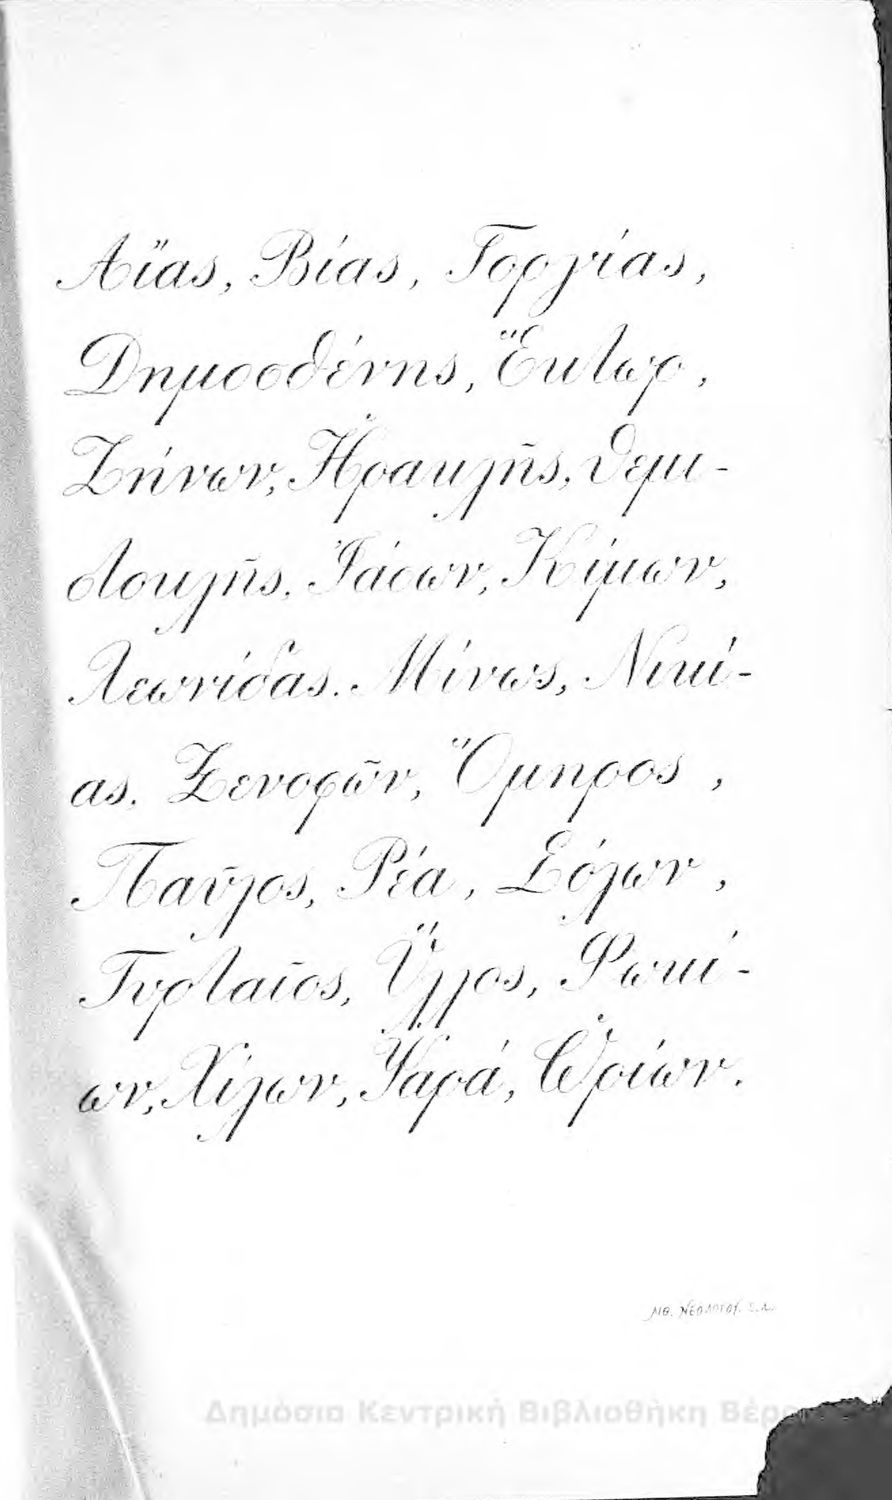 Αἴας, Βίας, Γοργίας,
Δημοσθένης, Ἕκτωρ,
Ζήνων, Ἡρακλῆς, Θεμι-
στοκλῆς, Ἰάσων, Κίμων,
Λεωνίδας. Μίνως, Νικί-
ας. Ξενοφῶν, Ὅμηρος,
Παῦλος, Ρέα, Σόλων,
Τυρταῖος, Ὕλλος, Φωκί-
ων, Χίλων, Ψαρά, Ὠρίων.
ΛΙΘ. ΝΕΟΛΟΓΟΥ. Σ.Λ.
Δημόσια Κεντρική Βιβλιοθήκη